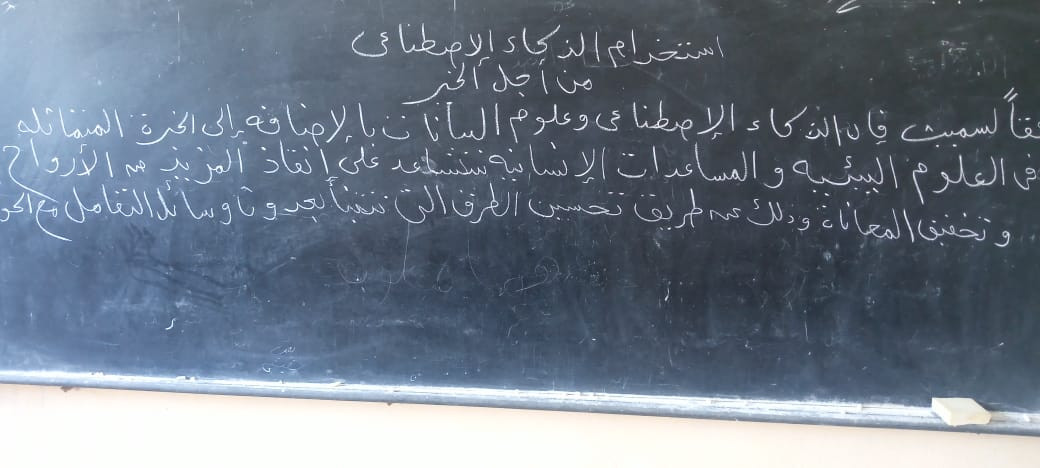 استخدام الذكاء الإصطناعى
من أجل الخير
لسميث فإن الذكاء الإصطناعى وعلوم البيانات بالإضافه إلى الخبرة المتمثله
فى العلوم البيئيه والمساعدات الإنسانيه ستساعد على إنقاذ المزيد من الأرواح
وتخفيف المعاناة وذلك عن طريق تحسين الطرق التى نتنبأ بها وسائل التعامل مع